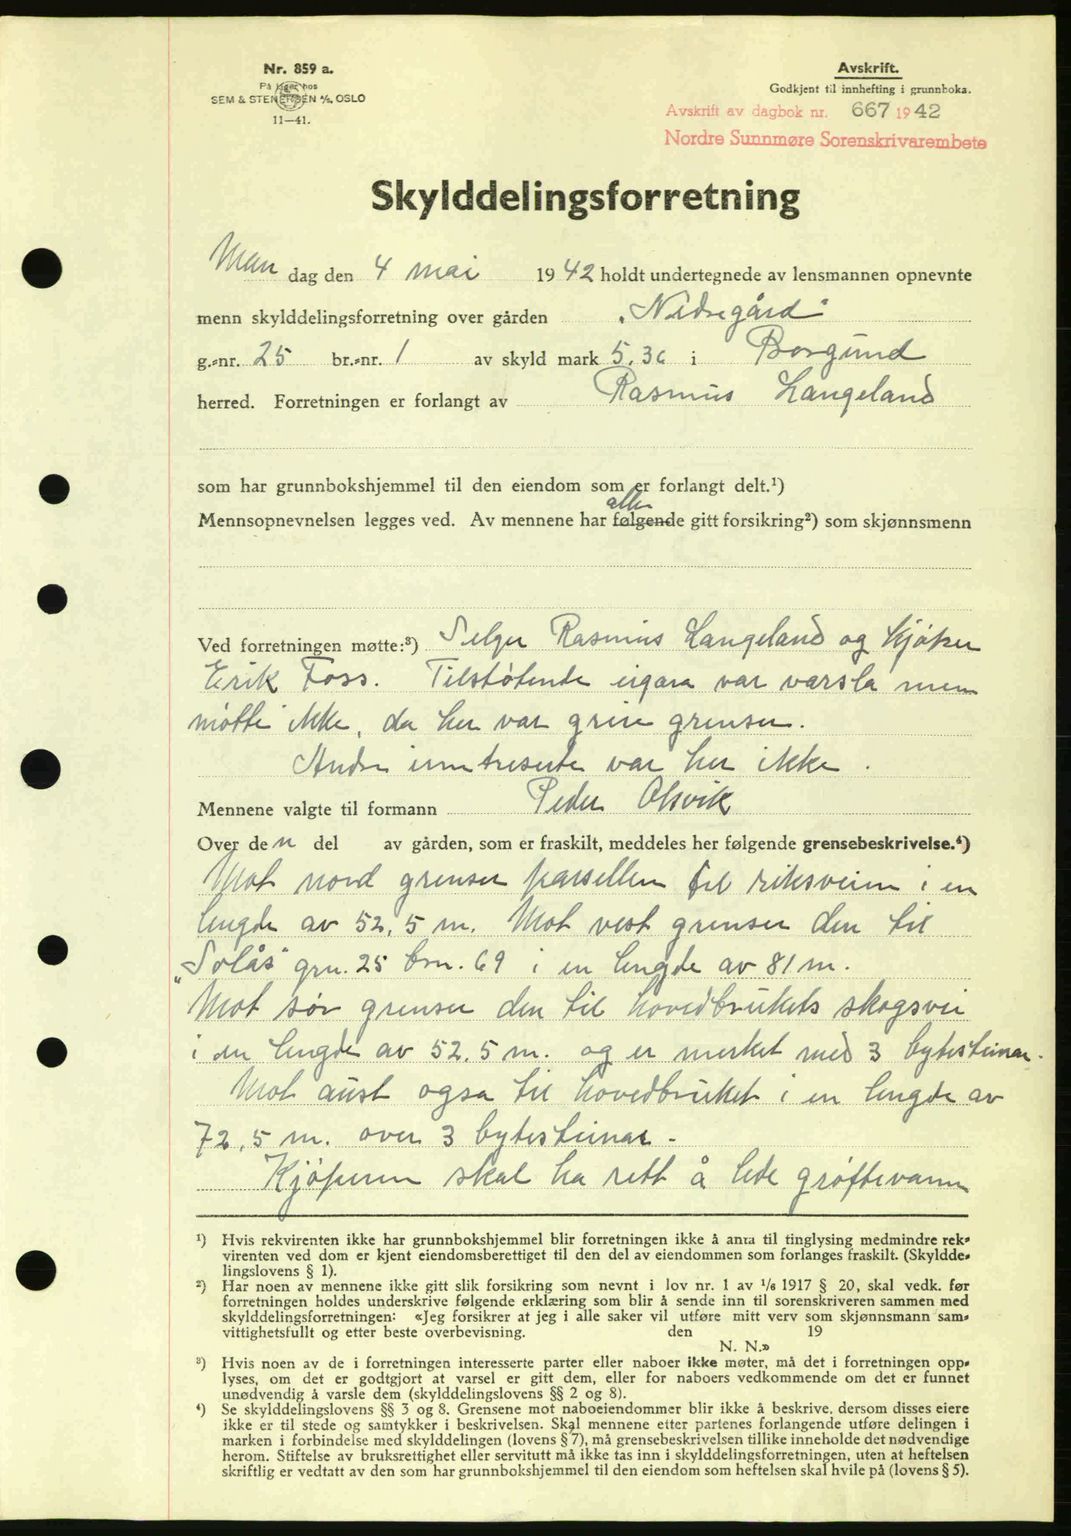 Nr. 859 a.
På lager hos
SEM & STENERSEN A/S, OSLO
11—41.
Avskrift.
Godkjent til innhefting i grunnboka.
Avskrift av dagbok nr. 667 1942
Nordre Sunnmøre Sorenskrivarembete
Skylddelingsforretning
Man dag den 4 mai 1942 holdt undertegnede av lensmannen opnevnte
menn skylddelingsforretning over gården "Nedregård"
g.-nr. 25 br.-nr. 1 av skyld mark 5.36 i Borgund
herred. Forretningen er forlangt av Rasmus Langeland
som har grunnbokshjemmel til den eiendom som er forlangt delt.¹)
alle
Mennsopnevnelsen legges ved. Av mennene har følgende gitt forsikring²) som skjønnsmenn
Ved forretningen møtte:³) Selger Rasmus Langeland og kjøper
Erik Foss. Tilstøtende eigara var varsla men
møtte ikke, da her var greie grenser.
Andre interesserte var her ikke.
Mennene valgte til formann Peder Aksvik
Over den del av gården, som er fraskilt, meddeles her følgende grensebeskrivelse.⁴)
Mot nord grenser parsellen til riksveien i en
lengde av 52,5 m. Mot vest grenser den til
"Solås" gnr. 25 brn. 69 i en lengde av 81 m.
Mot sør grenser den til hovedbrukets skogsvei
i en lengde av 52,5 m. og er merket med 3 bytesteinar.
Mot aust også til hovedbruket i en lengde av
72,5 m. over 3 bytesteinar.
Kjøperen skal ha rett å lede grøftevann
¹) Hvis rekvirenten ikke har grunnbokshjemmel blir forretningen ikke å anta til tinglysing medmindre rek-
virenten ved dom er kjent eiendomsberettiget til den del av eiendommen som forlanges fraskilt. (Skyldde-
lingslovens § 1).
²) Har noen av mennene ikke gitt slik forsikring som nevnt i lov nr. 1 av 1/6 1917 § 20, skal vedk. før
forretningen holdes underskrive følgende erklæring som blir å sende inn til sorenskriveren sammen med
skylddelingsforretningen: «Jeg forsikrer at jeg i alle saker vil utføre mitt verv som skjønnsmann sam-
vittighetsfullt og etter beste overbevisning. den 19
N. N.»
³) Hvis noen av de i forretningen interesserte parter eller naboer ikke møter, må det i forretningen opp-
lyses, om det er godtgjort at varsel er gitt dem, eller for naboers vedkommende om det er funnet
unødvendig å varsle dem (skylddelingslovens §§ 2 og 8).
⁴) Se skylddelingslovens §§ 3 og 8. Grensene mot naboeiendommer blir ikke å beskrive, dersom disses eiere
ikke er til stede og samtykker i beskrivelsen. Skal mennene etter partenes forlangende utføre delingen i
marken i forbindelse med skylddelingen (lovens § 7), må grensebeskrivelsen tillike inneholde det nødvendige
herom. Stiftelse av bruksrettighet eller servitutt må ikke tas inn i skylddelingsforretningen, uten at heftelsen
skriftlig er vedtatt av den som har grunnbokshjemmel til den eiendom som heftelsen skal hvile på (lovens § 5).